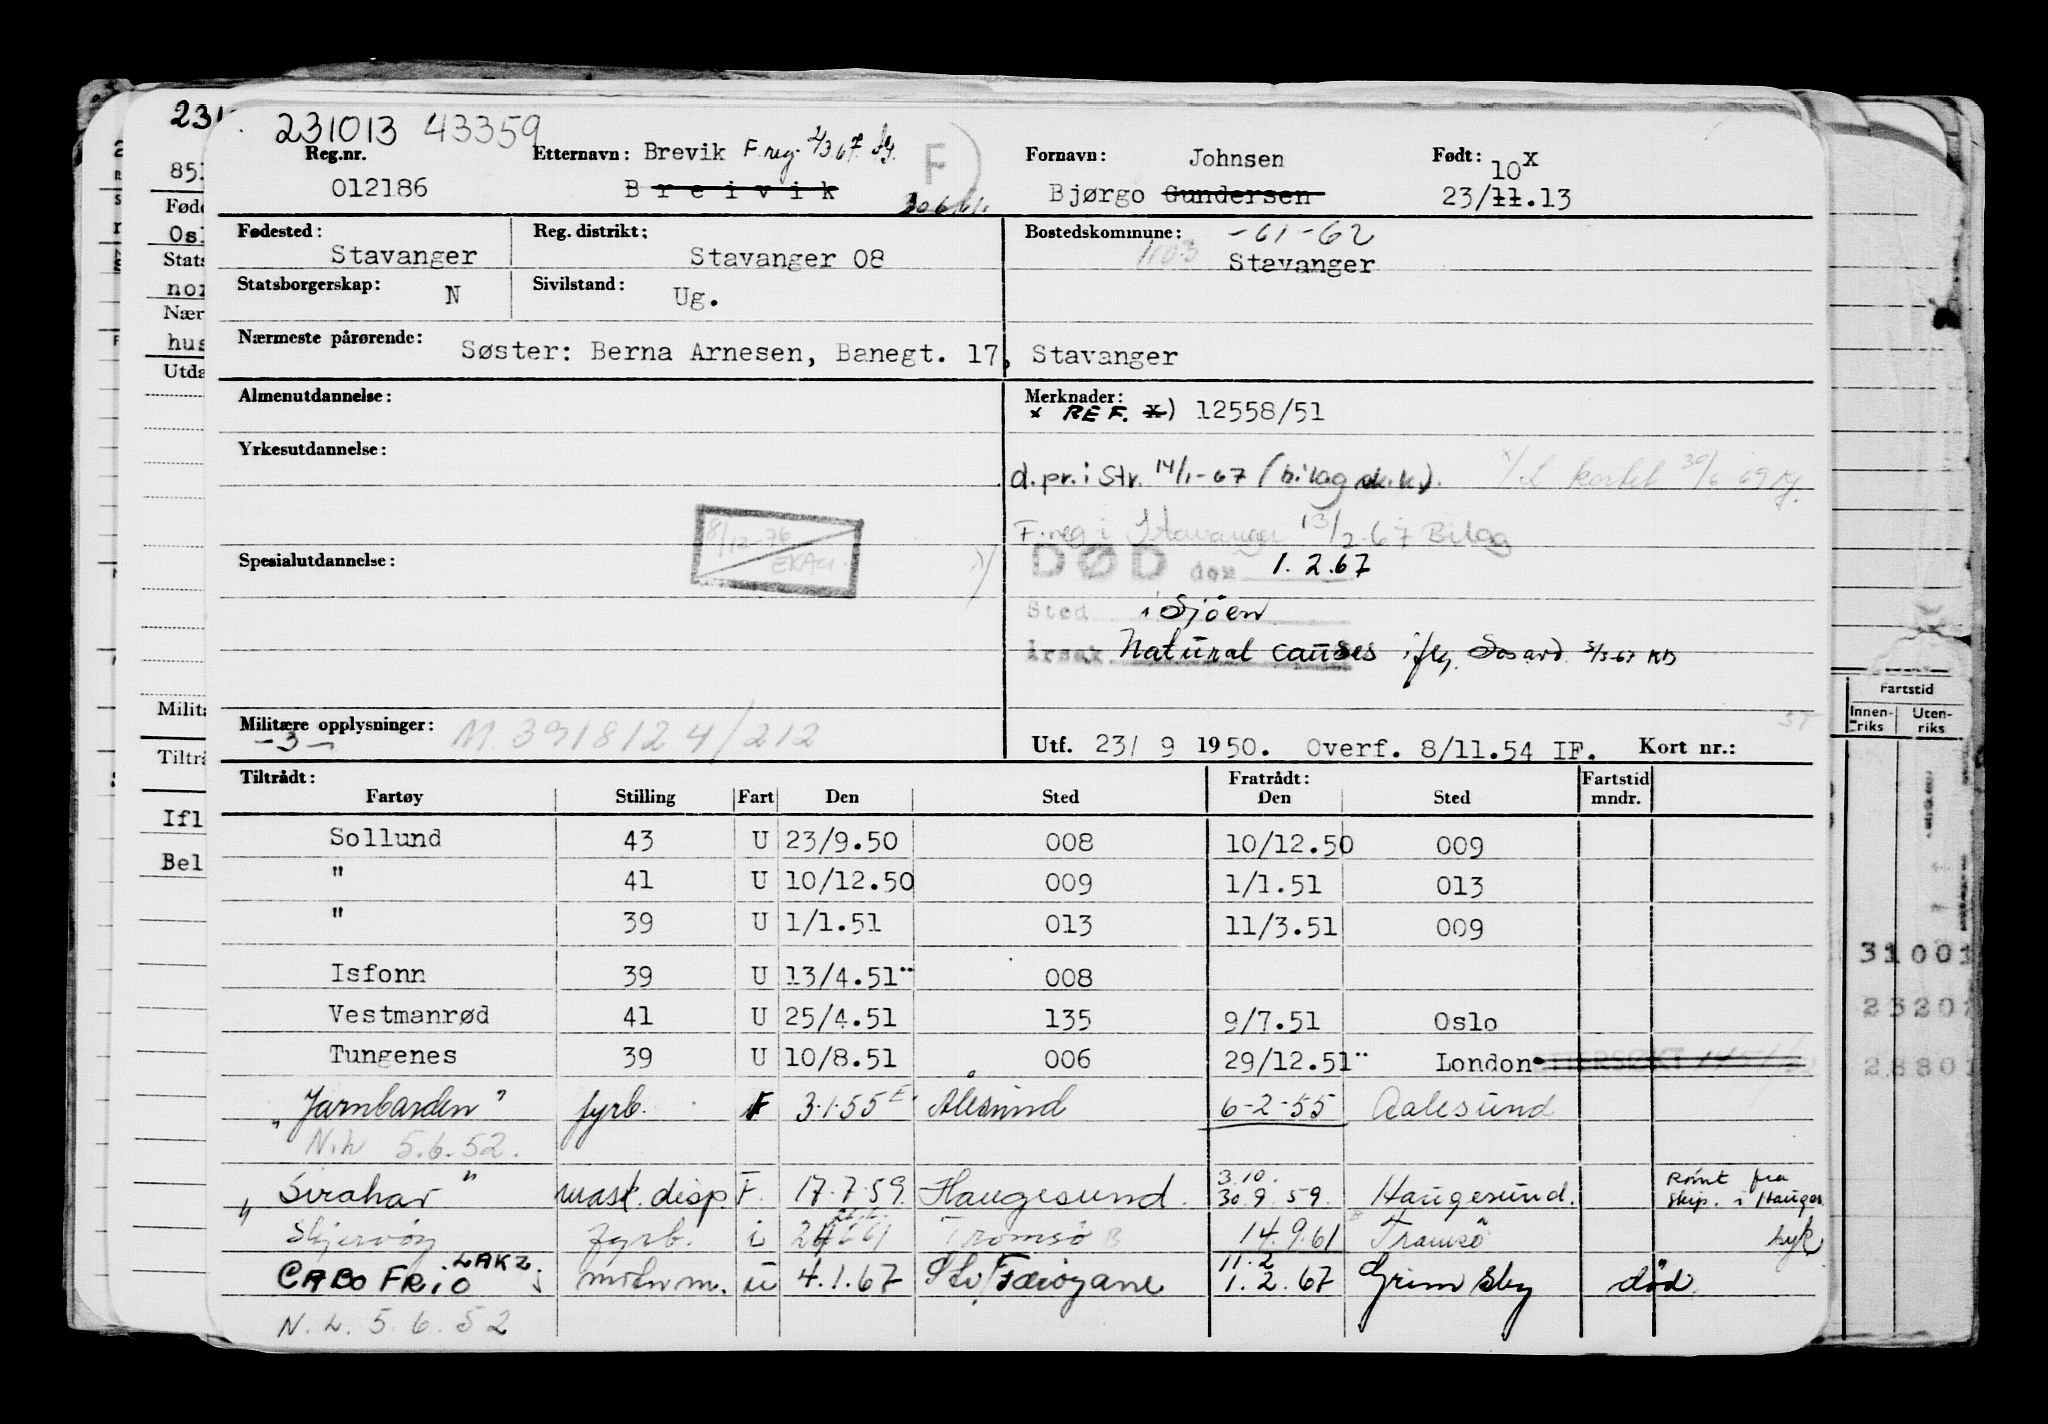 231013 43359
Reg.nr. Etternavn: Brevik F.reg. Fornavn: Johnsen Født: 10 x
012186 B r e i v i k F Bjørgo Gundersen 23/11.13
Fødested: Reg. distrikt: Bostedskommune: -61-62
Stavanger Stavanger 08 1103 Stavanger
Statsborgerskap: N Sivilstand: Ug.
Nærmeste pårørende: Søster: Berna Arnesen, Banegt. 17, Stavanger
Almenutdannelse: Merknader:
x REF. x) 12558/51
Yrkesutdannelse:
d.pr. i Str. 14/1-67 (bilag
F.reg i Stavanger 13/2-67 Bilag
8/12-76
Spesialutdannelse: DØD den 1.2.67
Sted i Sjøen
Årsak Natural causes
Militære opplysninger: M 3918124/212
-3-
Utf. 23/ 9 1950. Overf. 8/11.54 IF. Kort nr.:
Tiltrådt: Fratrådt: Fartstid
Fartøy Stilling Fart Den Sted Den Sted mndr.
Sollund 43 U 23/9.50 008 10/12.50 009
" 41 U 10/12.50 009 1/1.51 013
" 39 U 1/1.51 013 11/3.51 009
Isfonn 39 U 13/4.51 008
Vestmanrød 41 U 25/4.51 135 9/7.51 Oslo
Tungenes 39 U 10/8.51 006 29/12.51 London
"Jarnbarden" fyrb. F 3.1.55 Ålesund 6-2-55 Aalesund
N.h 5.6.52.
"Sirahav" mask. disp. F. 17.7.59. Haugesund. 3.10. 30.9.59. Haugesund. Rømt fra skip. i Hauges
Skjervøy fyrb. i Tromsø 14.9.61 Tromsø
CABO FRIO u 4.1.67 Færøyane 11.2 1.2.67 Grimsby død.
N.h. 5.6.52
231
Ifl
Bel
Fartstid
Innen- Uten-
riks riks
31001